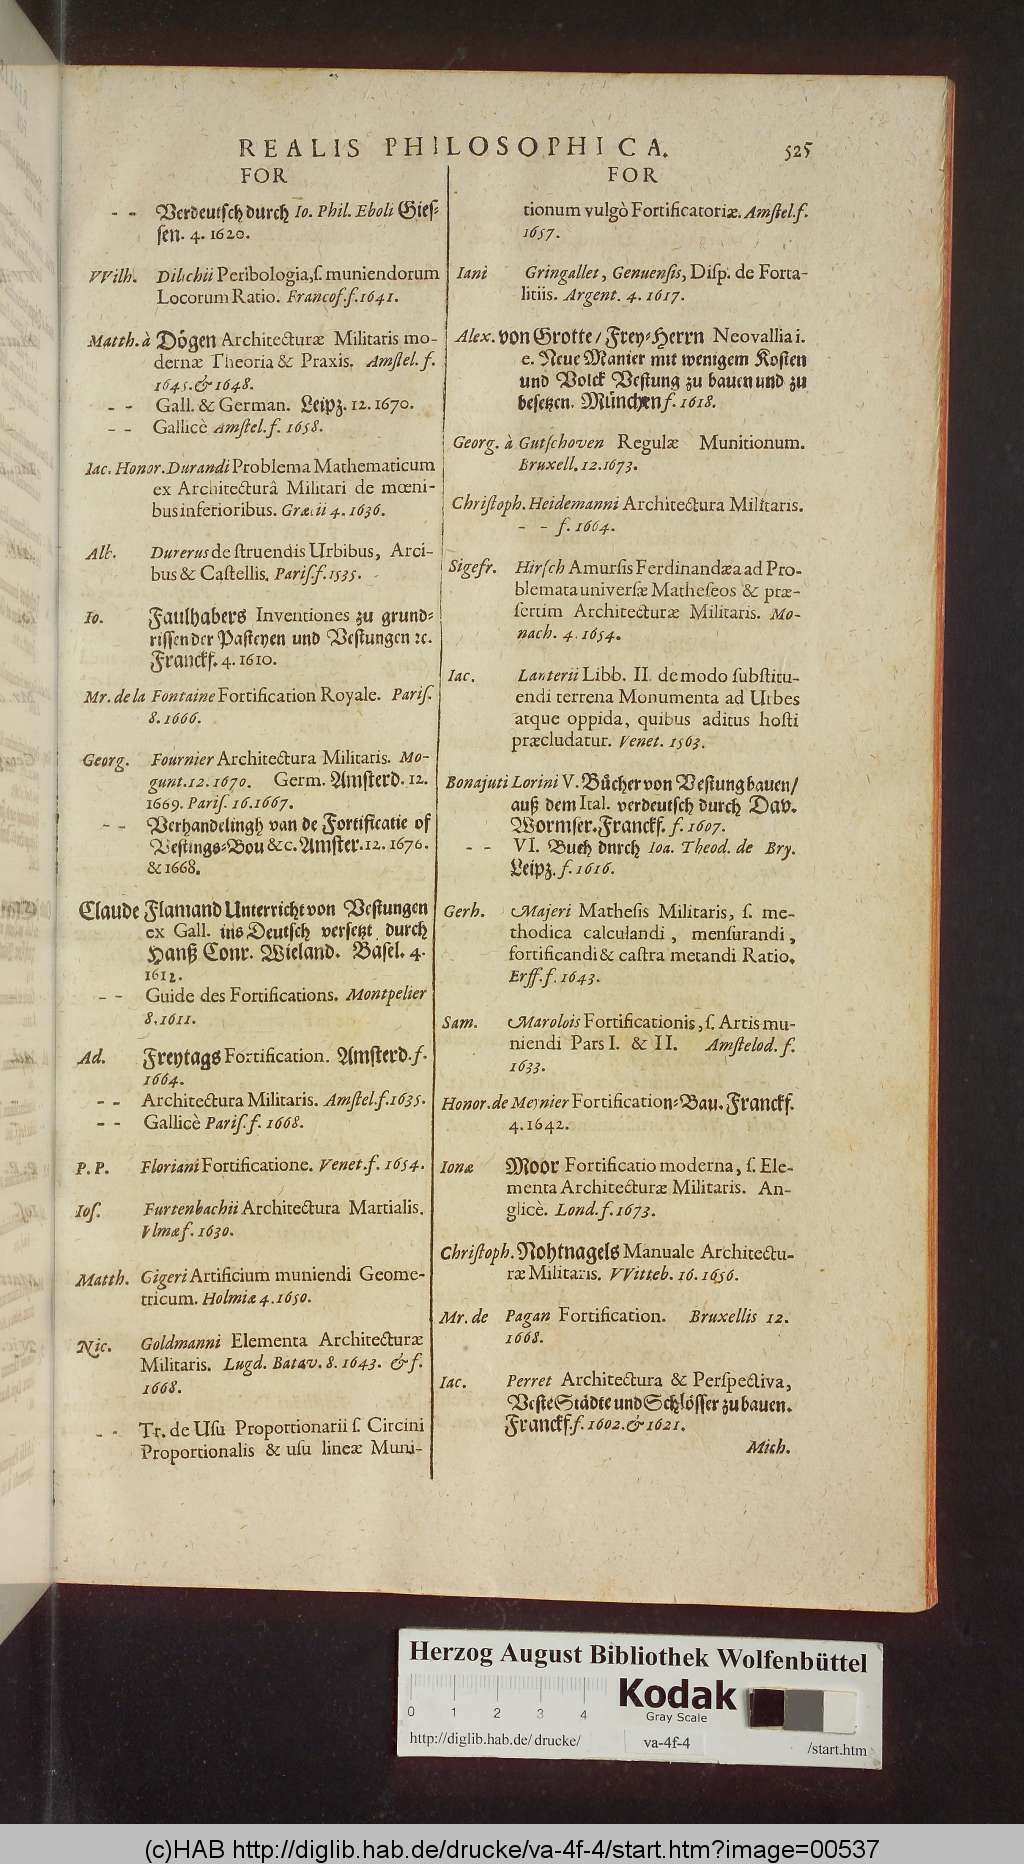 REALIS PHILOSOPHICA. 525
FOR
-- Verdeutsch durch Io. Phil. Eboli Gies-
sen. 4. 1620.
VVilh. Dilichii Peribologia, ſ. muniendorum
Locorum Ratio. Francof. f. 1641.
Matth. à Dögen Architecturæ Militaris mo-
dernæ Theoria & Praxis. Amſtel. f.
1645. & 1648.
-- Gall. & German. Leipz. 12. 1670.
-- Gallicè Amſtel. f. 1658.
Iac. Honor. Durandi Problema Mathematicum
ex Architecturâ Militari de mœni-
bus inferioribus. Græcii 4. 1636.
Alb. Durerus de ſtruendis Urbibus, Arci-
bus & Caſtellis. Pariſ. f. 1535.
Io. Faulhabers Inventiones zu grund-
riſſen der Paſteyen und Veſtungen ꝛc.
Franckf. 4. 1610.
Mr. de la Fontaine Fortification Royale. Pariſ.
8. 1666.
Georg. Fournier Architectura Militaris. Mo-
gunt. 12. 1670. Germ. Amſterd. 12.
1669. Pariſ. 16. 1667.
-- Verhandelingh van de Fortificatie of
Veſtings-Bou &c. Amſter. 12. 1676.
& 1668.
Claude Flamand Unterricht von Veſtungen
ex Gall. ins Deutſch verſetzt durch
Hanß Conr. Wieland. Baſel. 4.
1612.
-- Guide des Fortifications. Montpelier
8. 1611.
Ad. Freytags Fortification. Amſterd. f.
1664.
-- Architectura Militaris. Amſtel. f. 1635.
-- Gallicè Pariſ. f. 1668.
P. P. Floriani Fortificatione. Venet. f. 1654.
Ioſ. Furtenbachii Architectura Martialis.
Vlmæ f. 1630.
Matth. Gigeri Artificium muniendi Geome-
tricum. Holmiæ 4. 1650.
Nic. Goldmanni Elementa Architecturæ
Militaris. Lugd. Batav. 8. 1643. & f.
1668.
-- Tr. de Uſu Proportionarii ſ. Circini
Proportionalis & uſu lineæ Muni-
FOR
tionum vulgò Fortificatoriæ. Amſtel. f.
1657.
Iani Gringallet, Genuenſis, Diſp. de Forta-
litiis. Argent. 4. 1617.
Alex. von Grotte / Frey-Herrn Neovallia i.
e. Neue Manier mit wenigem Koſten
und Volck Veſtung zu bauen und zu
beſetzen. München f. 1618.
Georg. à Gutſchoven Regulæ Munitionum.
Bruxell. 12. 1673.
Chriſtoph. Heidemanni Architectura Militaris.
-- f. 1664.
Sigefr. Hirſch Amuſſis Ferdinandæa ad Pro-
blemata univerſæ Matheſeos & præ-
ſertim Architecturæ Militaris. Mo-
nach. 4. 1654.
Iac. Lanterii Libb. II. de modo ſubſtitu-
endi terrena Monumenta ad Urbes
atque oppida, quibus aditus hoſti
præcludatur. Venet. 1563.
Bonajuti Lorini V. Bücher von Veſtung bauen /
auß dem Ital. verdeutſch durch Dav.
Wormſer. Franckf. f. 1607.
-- VI. Buch durch Ioa. Theod. de Bry.
Leipz. f. 1616.
Gerh. Majeri Matheſis Militaris, ſ. me-
thodica calculandi, menſurandi,
fortificandi & caſtra metandi Ratio.
Erff. f. 1643.
Sam. Marolois Fortificationis, ſ. Artis mu-
niendi Pars I. & II. Amſtelod. f.
1633.
Honor. de Meynier Fortification-Bau. Franckf.
4. 1642.
Ionæ Moor Fortificatio moderna, ſ. Ele-
menta Architecturæ Militaris. An-
glicè. Lond. f. 1673.
Chriſtoph. Nohtnagels Manuale Architectu-
ræ Militaris. VVitteb. 16. 1656.
Mr. de Pagan Fortification. Bruxellis 12.
1668.
Iac. Perret Architectura & Perſpectiva,
Veſte Städte und Schlöſſer zu bauen.
Franckf. f. 1602. & 1621.
Mich.
Herzog August Bibliothek Wolfenbüttel
0 1 2 3 4
Kodak
Gray Scale
http://diglib.hab.de/drucke/ va-4f-4 /start.htm
(c)HAB http://diglib.hab.de/drucke/va-4f-4/start.htm?image=00537